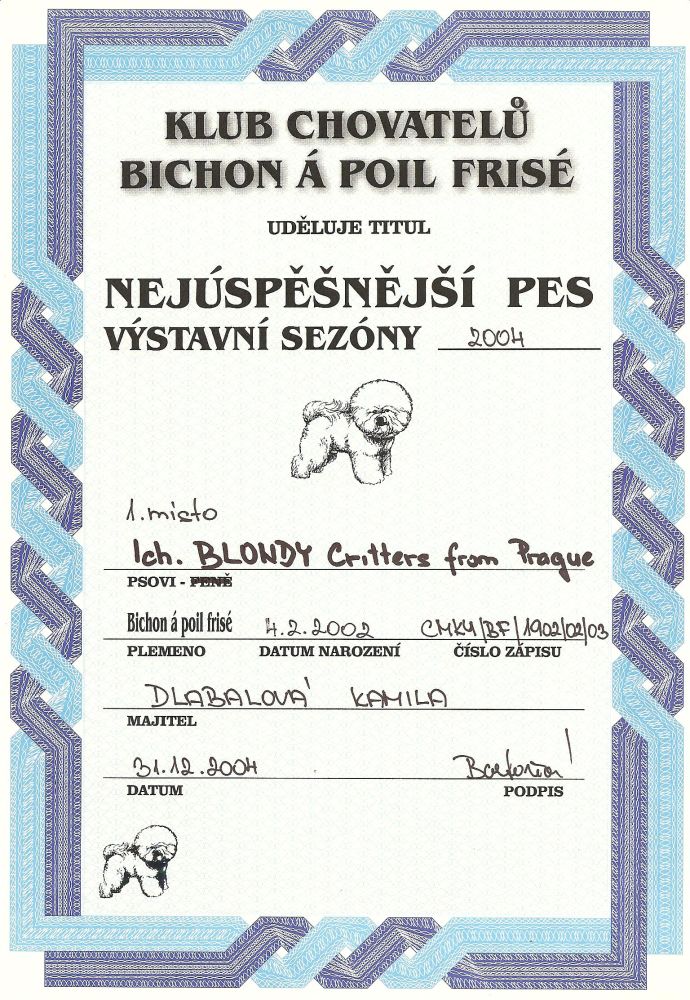 KLUB CHOVATELŮ
BICHON Á POIL FRISÉ
UDĚLUJE TITUL
NEJÚSPĚŠNĚJŠÍ PES
VÝSTAVNÍ SEZÓNY 2004
1. místo
Ich. BLONDY Critters from Prague
PSOVI - PENĚ
Bichon á poil frisé 4.2.2002 CMKU/BF/1902/02/03
PLEMENO DATUM NAROZENÍ ČÍSLO ZÁPISU
DLABALOVÁ KAMILA
MAJITEL
31.12.2004
DATUM PODPIS